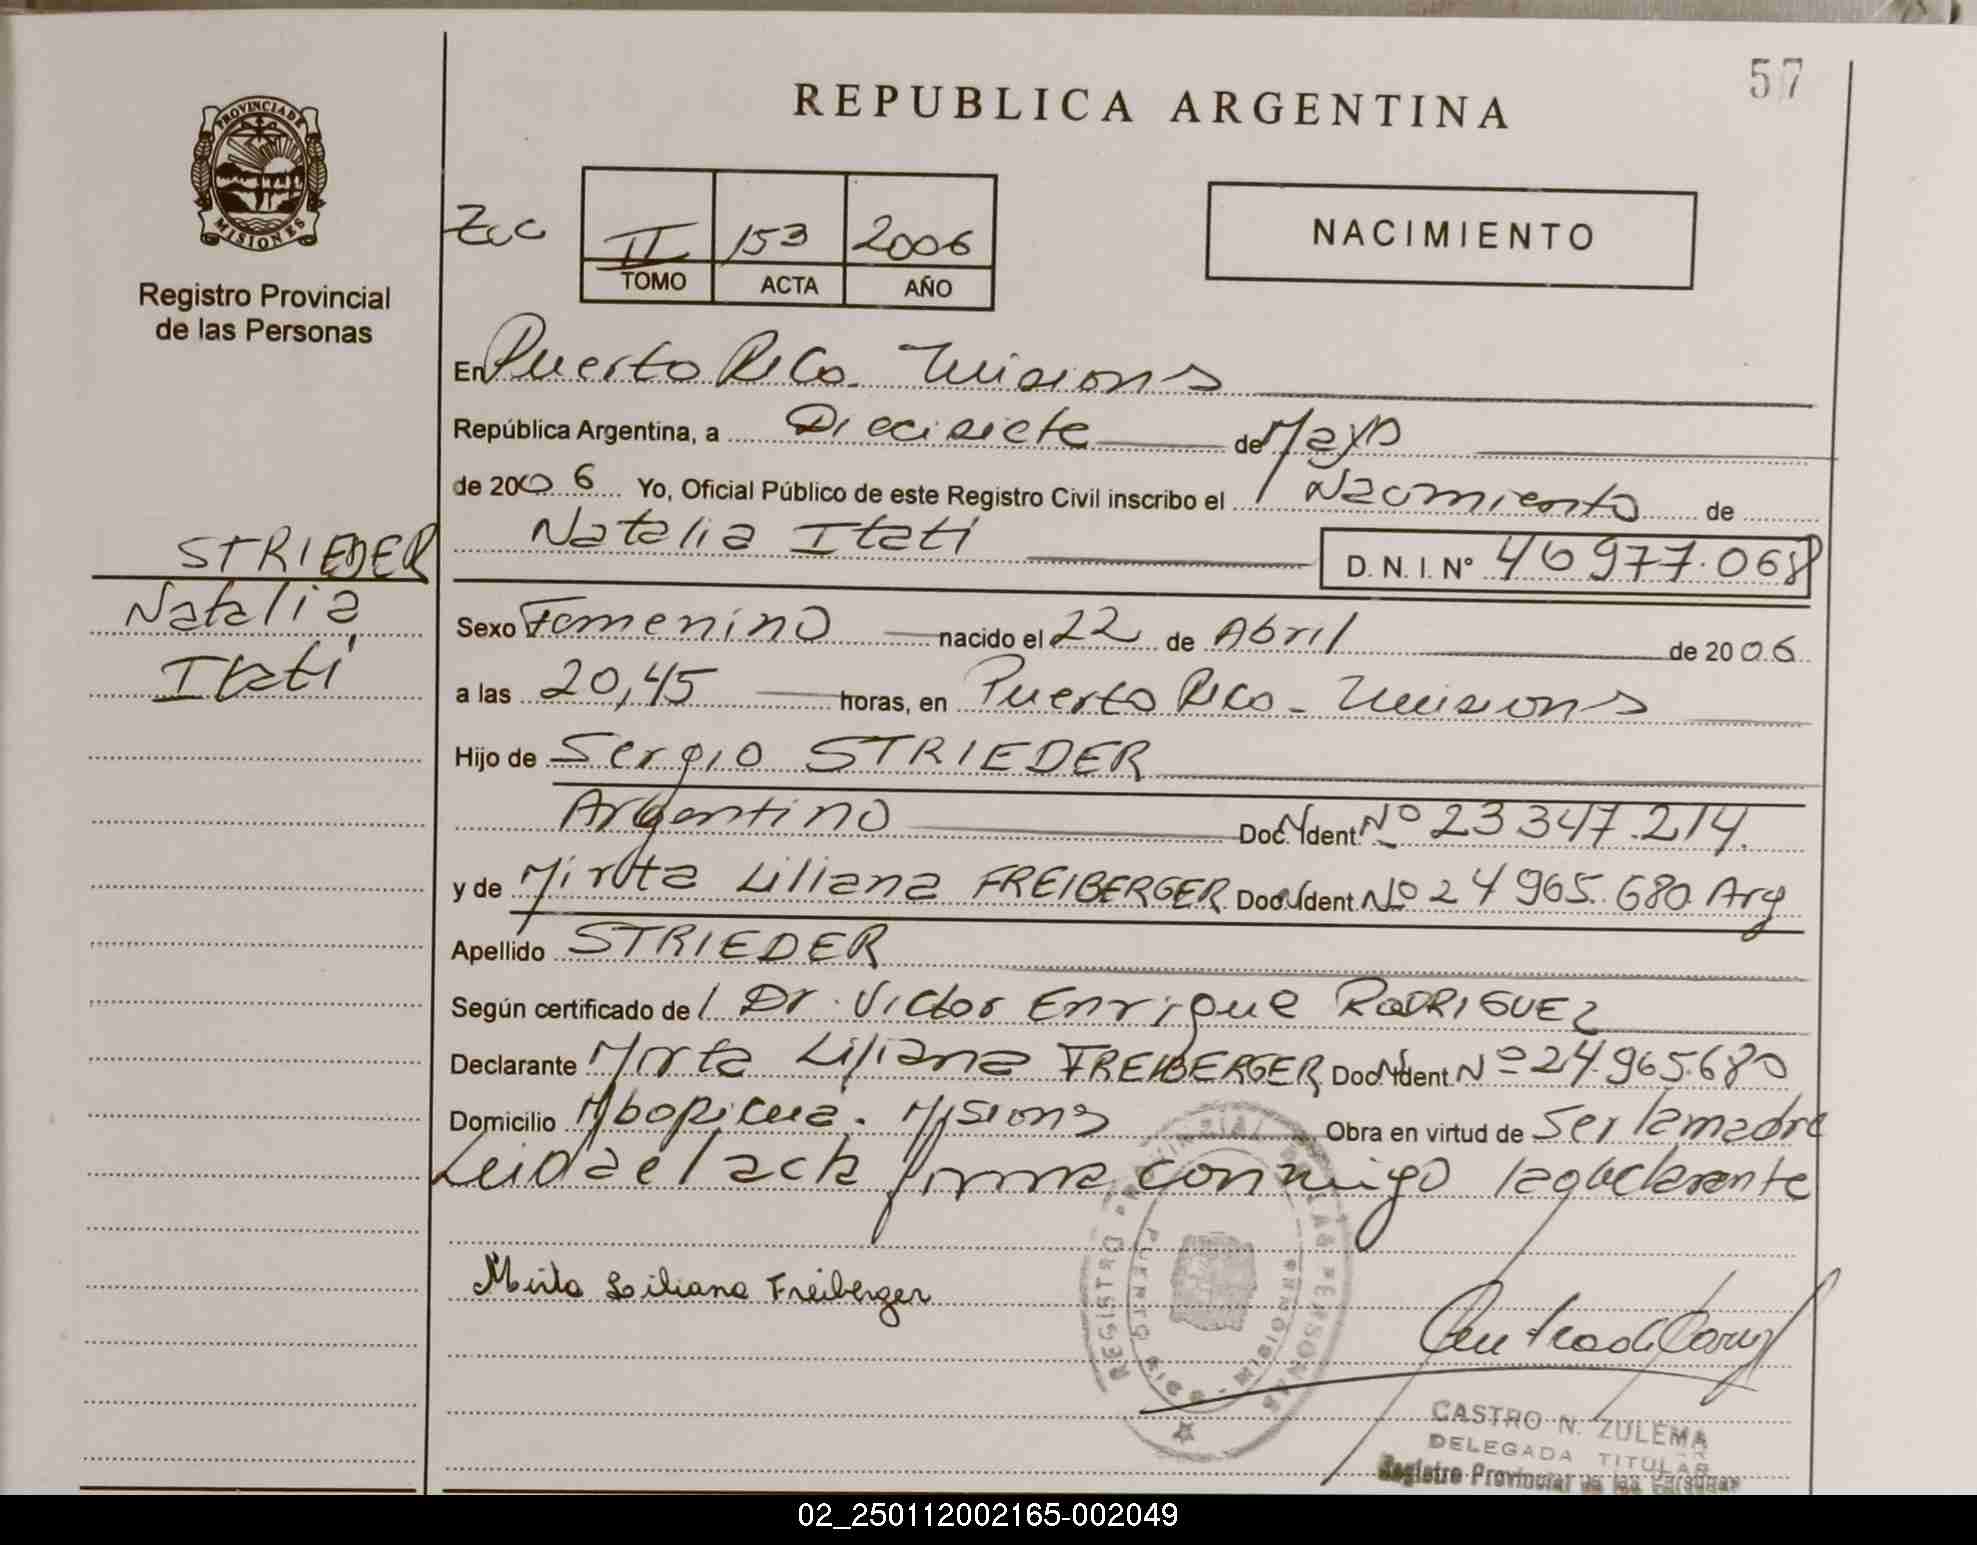 57
REPUBLICA ARGENTINA
PROVINCIA DE
MISIONES
Registro Provincial
de las Personas
II 153 2006
TOMO ACTA AÑO
NACIMIENTO
En Puerto Rico - Misiones
República Argentina, a Diecisiete de Mayo
de 2006 Yo, Oficial Público de este Registro Civil inscribo el Nacimiento de
Natalia Itatí D. N. I. Nº 46 977.068
STRIEDER
Natalia
Itatí
Sexo Femenino nacido el 22 de Abril de 2006
a las 20,45 horas, en Puerto Rico - Misiones
Hijo de Sergio STRIEDER
Argentino Doc. Ident. Nº 23 347.214.
y de Mirta Liliana FREIBERGER Doc. Ident. Nº 24 965.680 Arg
Apellido STRIEDER
Según certificado de Dr. Victor Enrique RODRIGUEZ
Declarante Mirta Liliana FREIBERGER Doc. Ident. Nº 24.965.680
Domicilio Mbopicuá. Misiones Obra en virtud de Ser la madre
Leida el acta firma conmigo la declarante
Mirta Liliana Freiberger
REGISTRO PROVINCIAL DE LAS PERSONAS
PUERTO RICO - MISIONES
CASTRO N. ZULEMA
DELEGADA TITULAR
Registro Provincial de las Personas
02_250112002165-002049